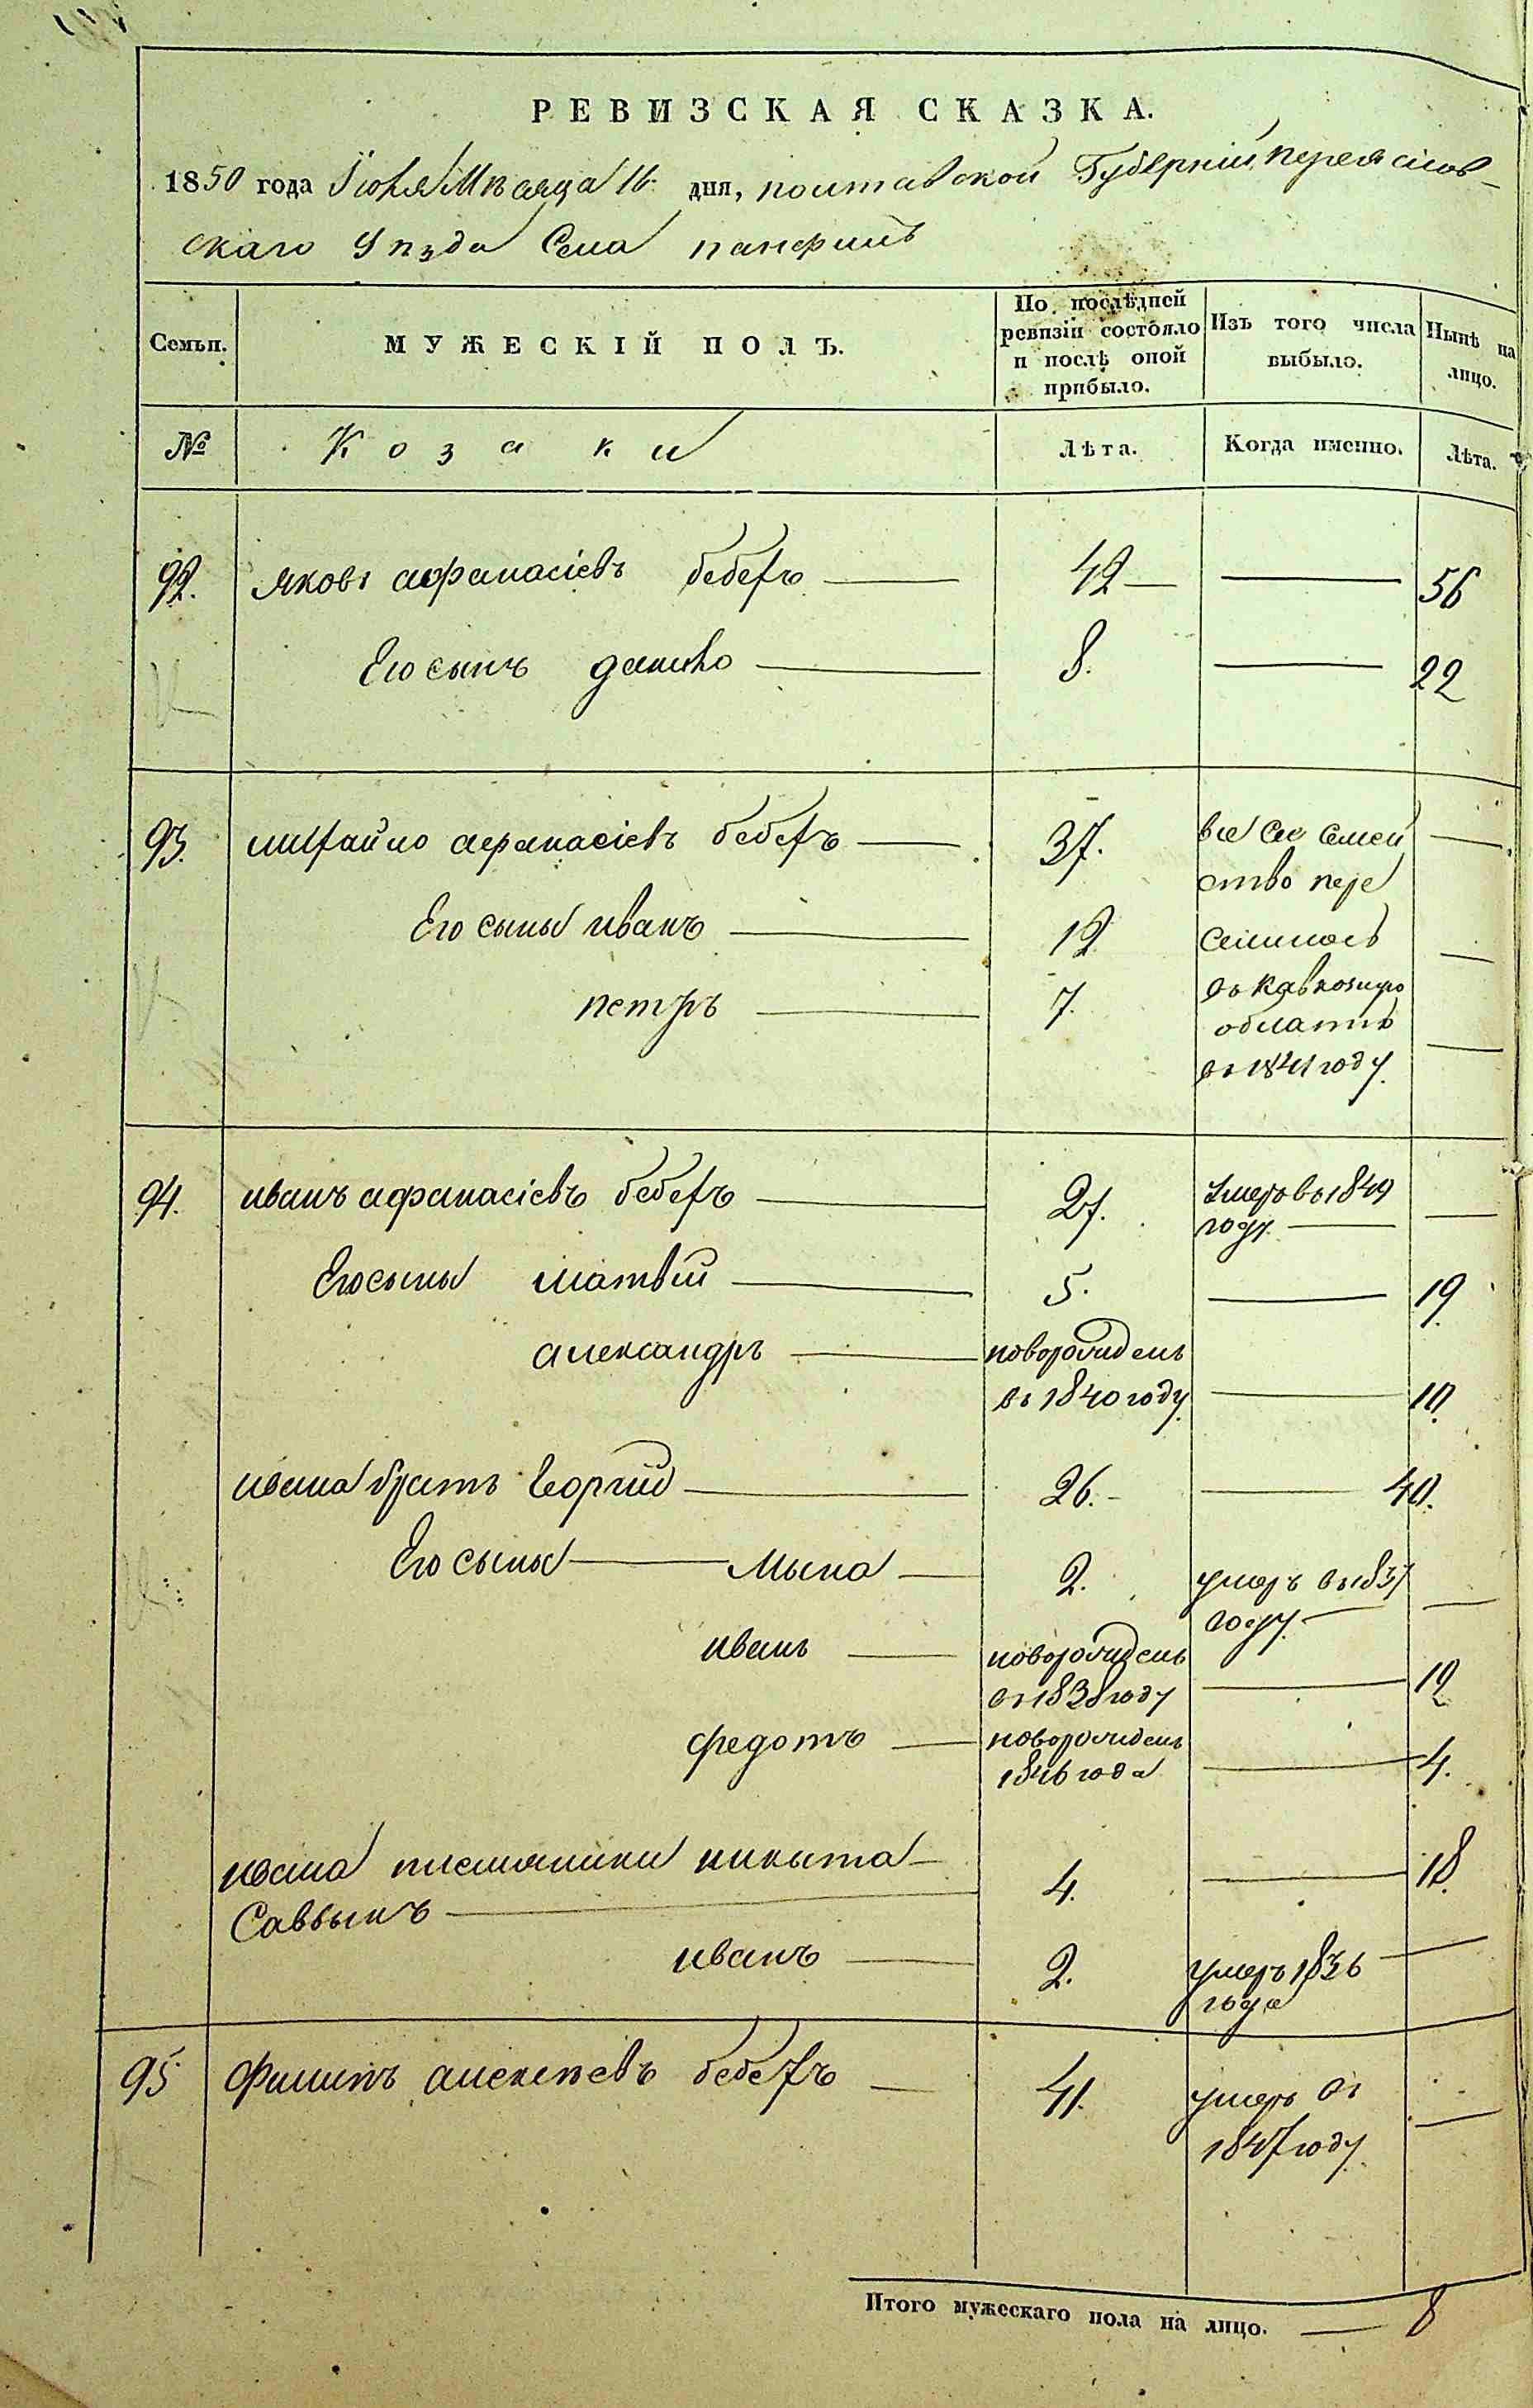 РЕВИЗСКАЯ СКАЗКА.
1850 года Іюля Мѣсяца 16 дня, полтавской Губерніи переяслов-
скаго Уѣзда Села панфилъ
Семьи. МУЖЕСКІЙ ПОЛЪ. По послѣдней ревизіи состояло и послѣ оной прибыло. Изъ того числа выбыло. Нынѣ на лицо.
№ Козаки Лѣта. Когда именно. Лѣта.
92. яковъ афанасіевъ бебехъ 42 56
Его сынъ данило 8. 22
93. михайло афанасіевъ бебехъ 37. все сие семей
ство пере
Его сыны иванъ 12 селилось
петръ 7. въ Кавказную
область
въ 1841 году.
94. иванъ афанасіевъ бебехъ 27. Умеръ въ 1849
году.
Его сыны матвій 5. 19.
александръ новорожденъ
въ 1840 году. 10.
ивана братъ Георгій 26. 40.
Его сыны Мына 2. умеръ въ 1837
году.
иванъ новорожденъ
въ 1838 году 12
федотъ новорожденъ
1846 года 4.
ивана племяники никыта
Саввынъ 4. 18.
иванъ 2. умеръ 1836
года
95 Филипъ алексѣевъ бебехъ 41. умеръ въ
1847 году.
Итого мужескаго пола на лицо. 8